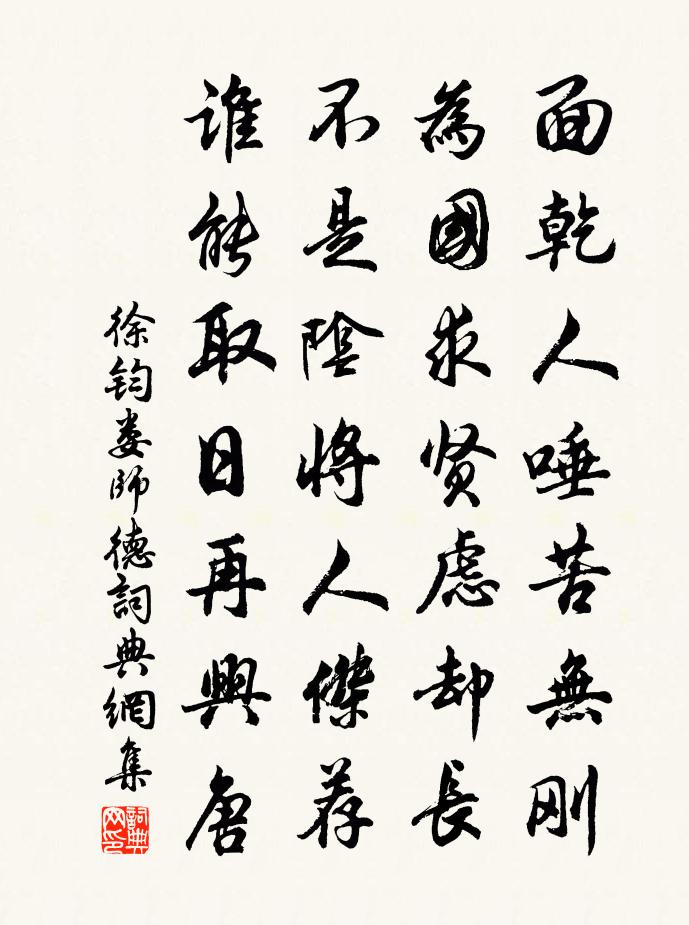 面乾人唾苦無刚
為國求贤慮却長
不是陰將人傑荐
誰能取日再興唐
徐钧娄師德詞典網集
詞典网印